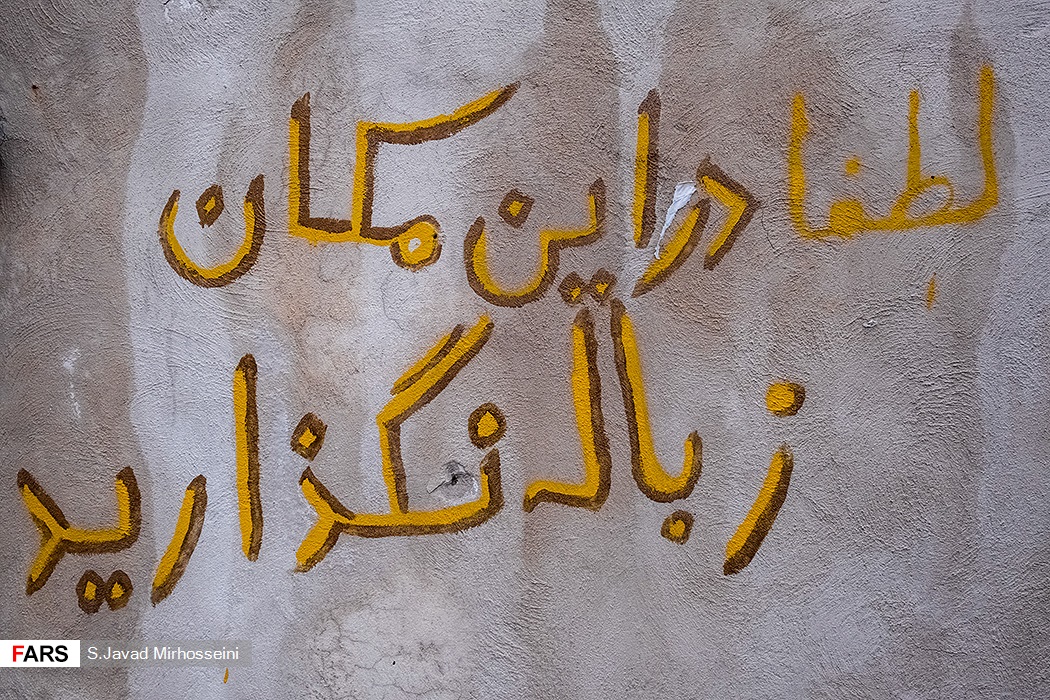 لطفا در این مکان
زباله نگذارید
FARS S.Javad Mirhosseini